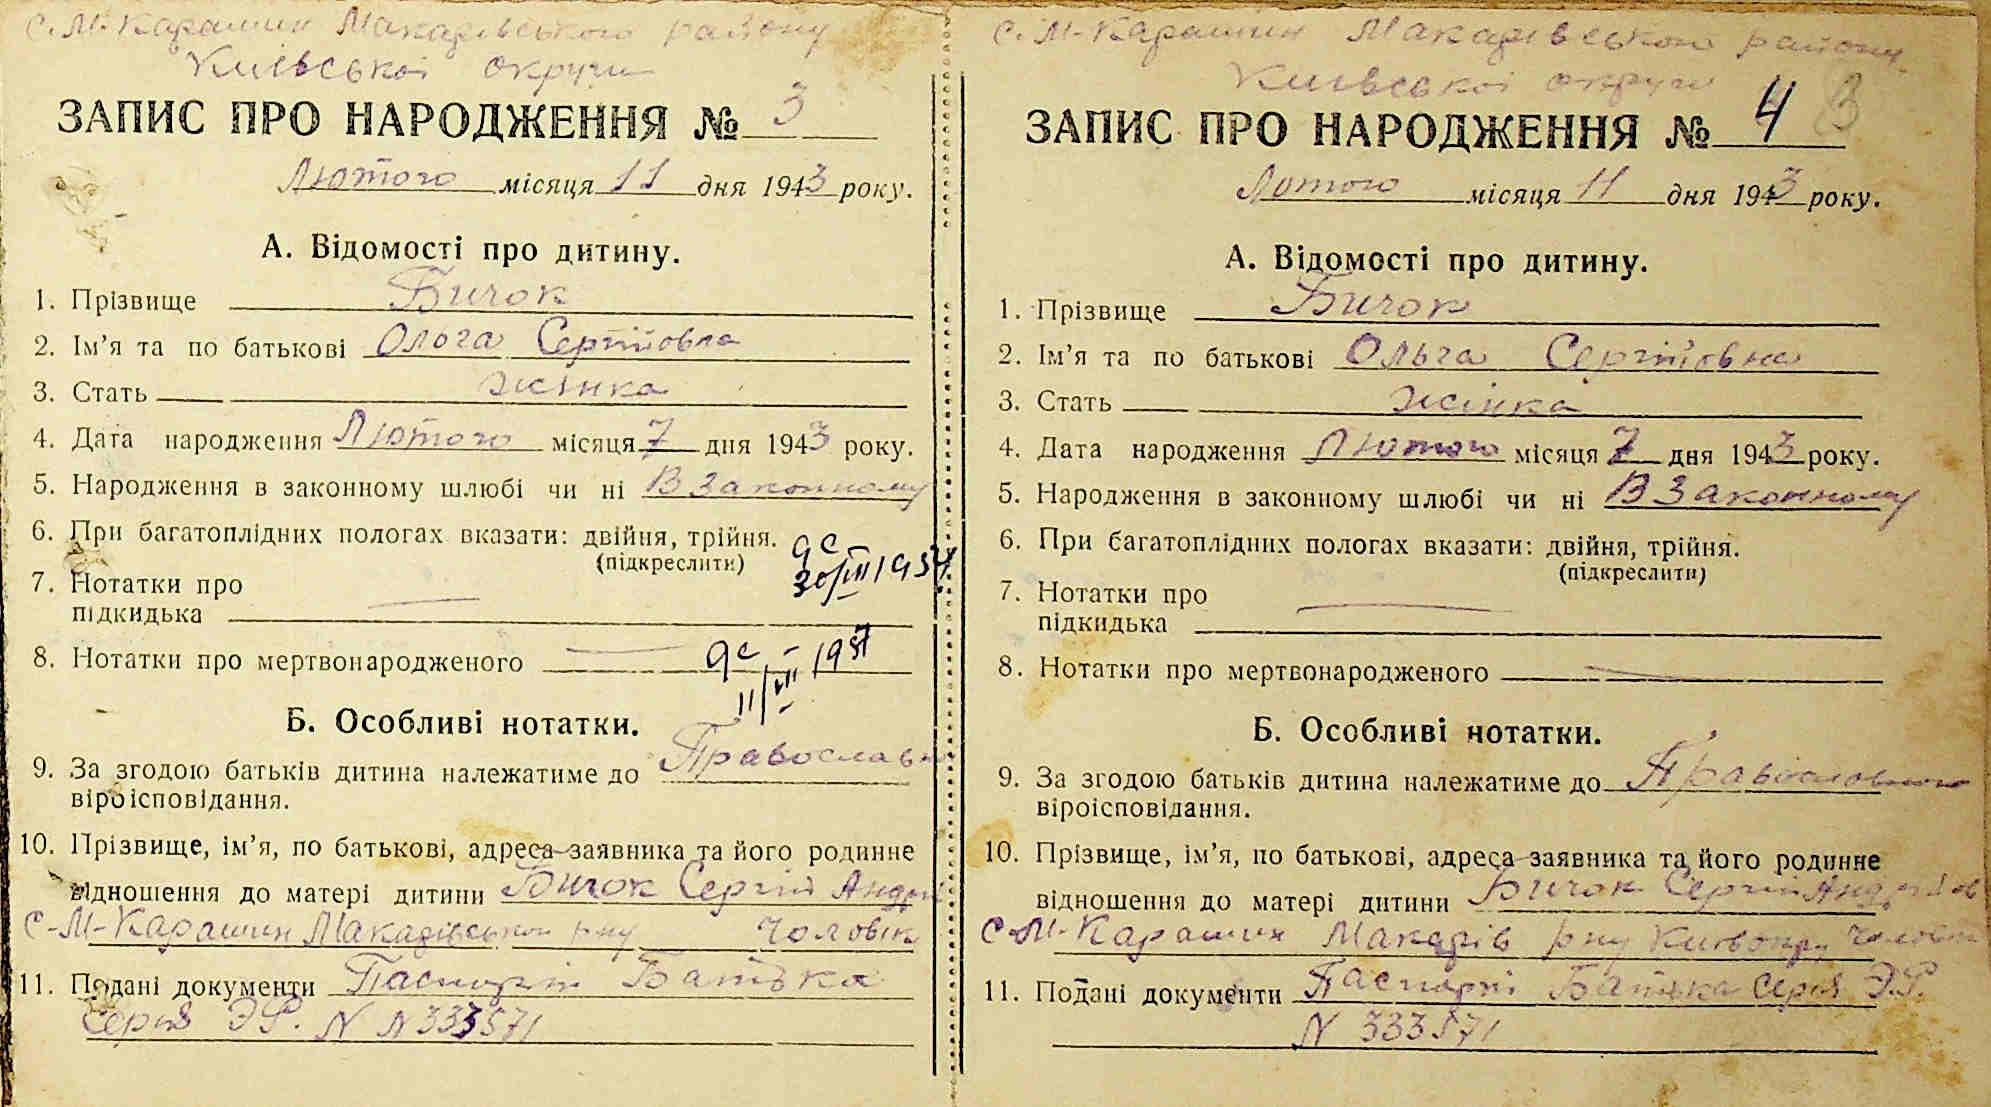 с. М-Карашин Макарівського району
Київської округи
ЗАПИС ПРО НАРОДЖЕННЯ № 3
Лютого місяця 11 дня 1943 року.
А. Відомості про дитину.
1. Прізвище Бичок
2. Ім’я та по батькові Олога Сергійовна
3. Стать жінка
4. Дата народження Лютого місяця 7 дня 1943 року.
5. Народження в законному шлюбі чи ні В законному
6. При багатоплідних пологах вказати: двійня, трійня.
(підкреслити)
7. Нотатки про
підкидька
8. Нотатки про мертвонародженого
Б. Особливі нотатки.
9. За згодою батьків дитина належатиме до Православн
віроісповідання.
10. Прізвище, ім’я, по батькові, адреса заявника та його родинне
відношення до матері дитини Бичок Сергій Андрі
с-М-Карашин Макарівського р-ну Чоловік
11. Подані документи Паспорт Батька
Серія ЭР. N N 333571
с. М-Карашин Макарівського району
Київської округи
ЗАПИС ПРО НАРОДЖЕННЯ № 4 3
Лютого місяця 11 дня 1943 року.
А. Відомості про дитину.
1. Прізвище Бичок
2. Ім’я та по батькові Ольга Сергійовна
3. Стать жінка
4. Дата народження Лютого місяця 7 дня 1943 року.
5. Народження в законному шлюбі чи ні В законному
6. При багатоплідних пологах вказати: двійня, трійня.
(підкреслити)
7. Нотатки про
підкидька
8. Нотатки про мертвонародженого
Б. Особливі нотатки.
9. За згодою батьків дитина належатиме до Православного
віроісповідання.
10. Прізвище, ім’я, по батькові, адреса заявника та його родинне
відношення до матері дитини Бичок Сергій Андрійов
с-М-Карашин Макарів р-ну Київ окру Чоловік
11. Подані документи Паспорт Батька Серія ЭР.
N 333571